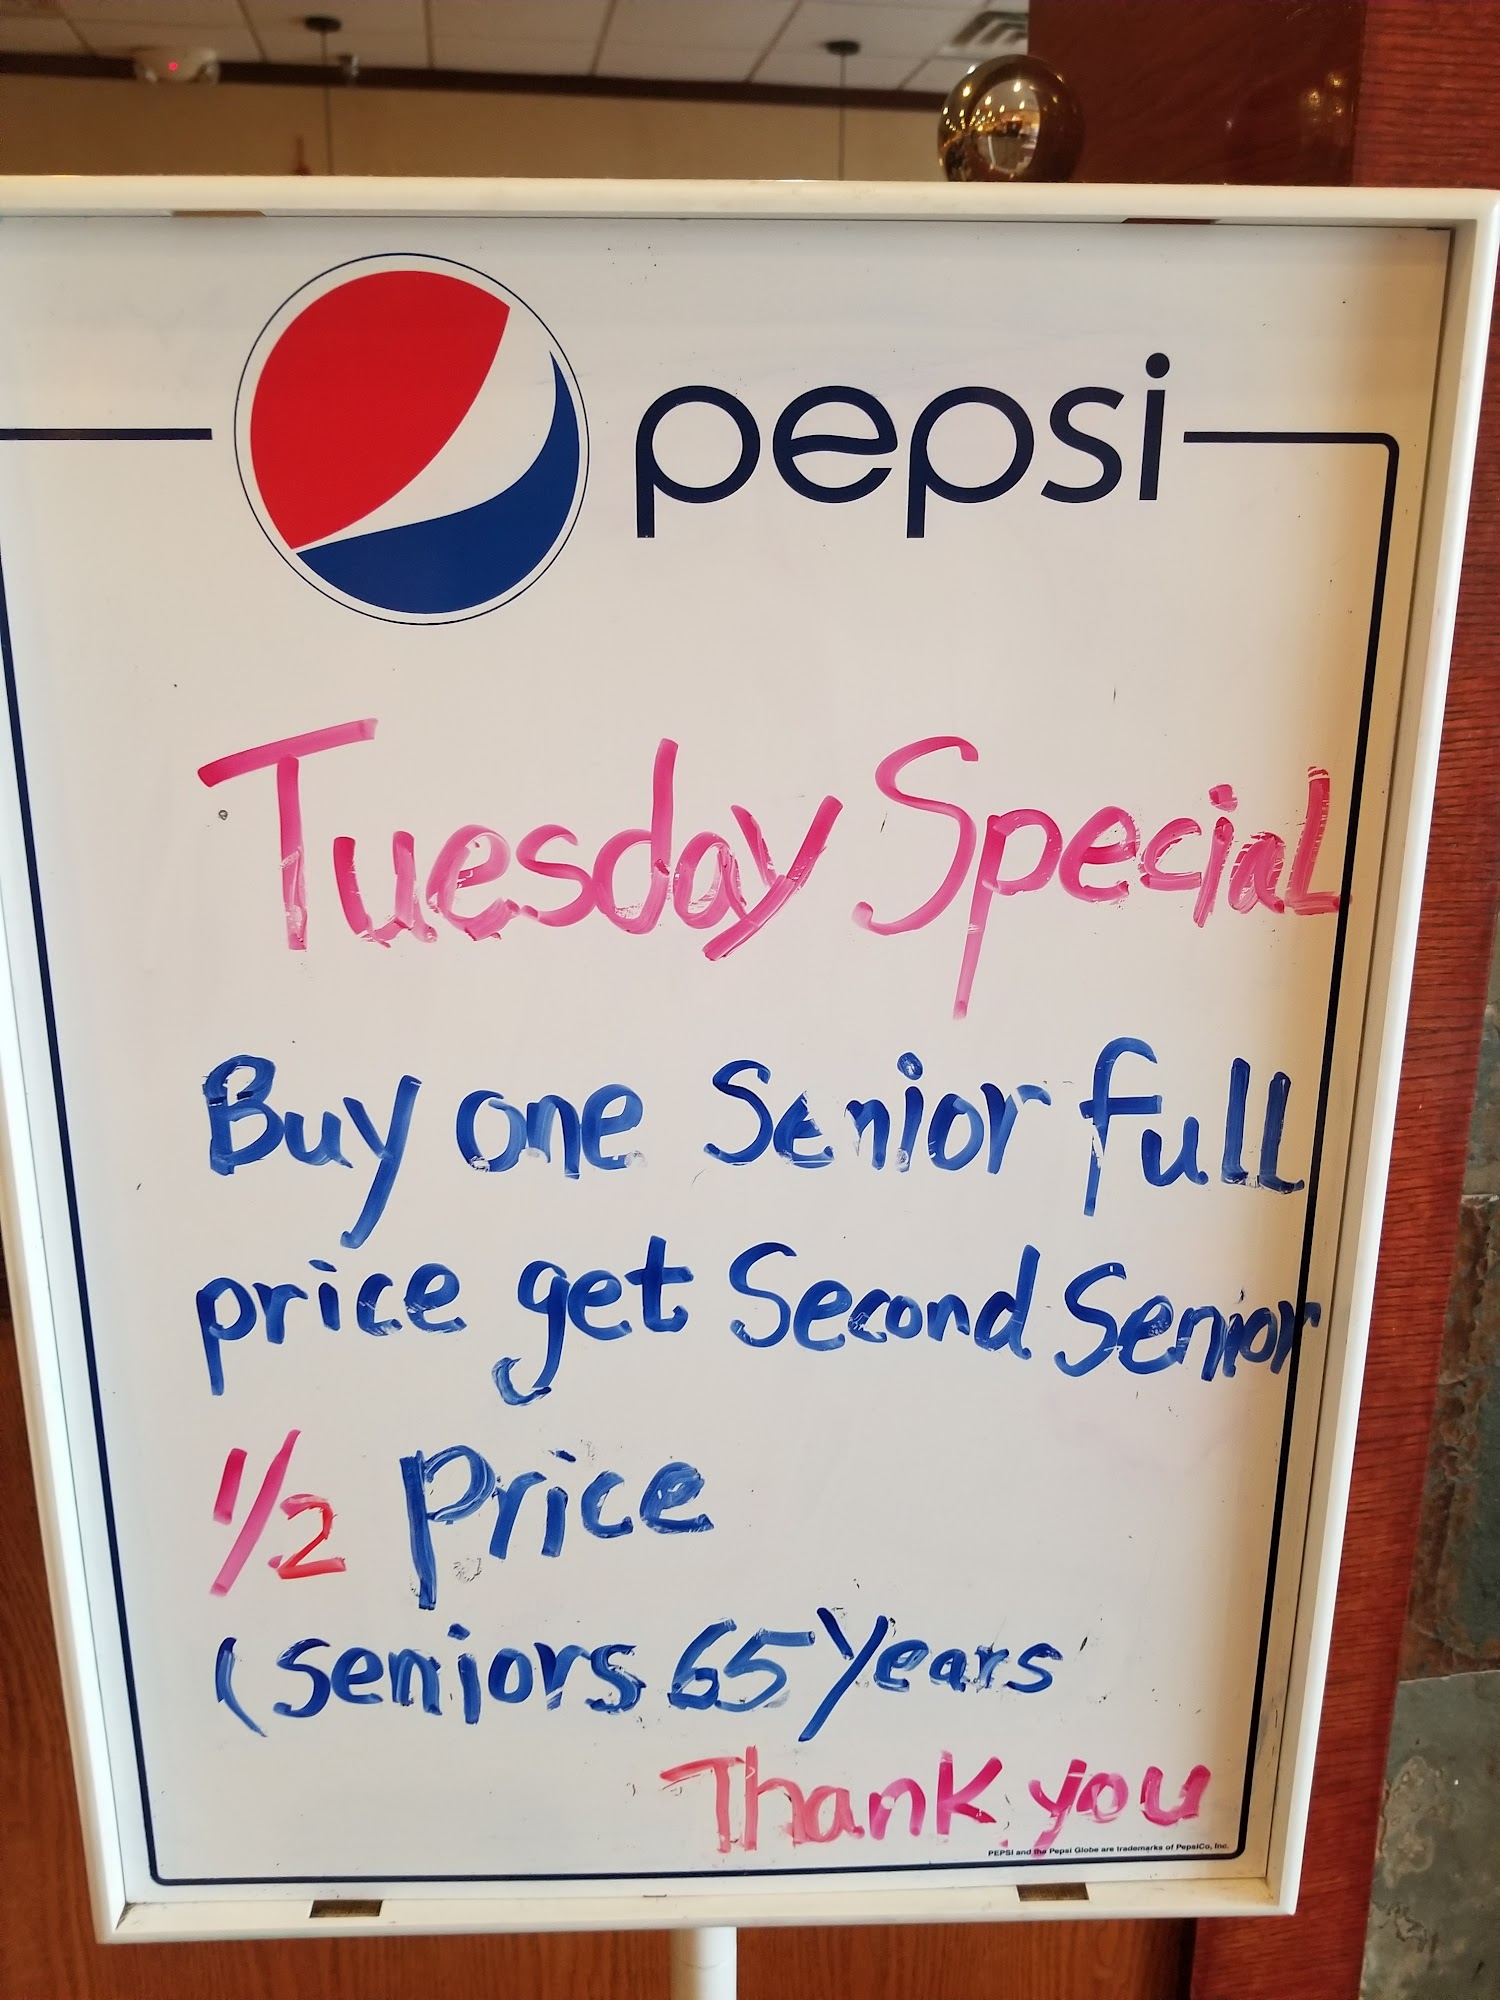 pepsi
Tuesday Special
Buy one Senior full
price get Second Senior
1/2 Price
(Seniors 65 Years
Thank you
PEPSI and the Pepsi Globe are trademarks of PepsiCo, Inc.